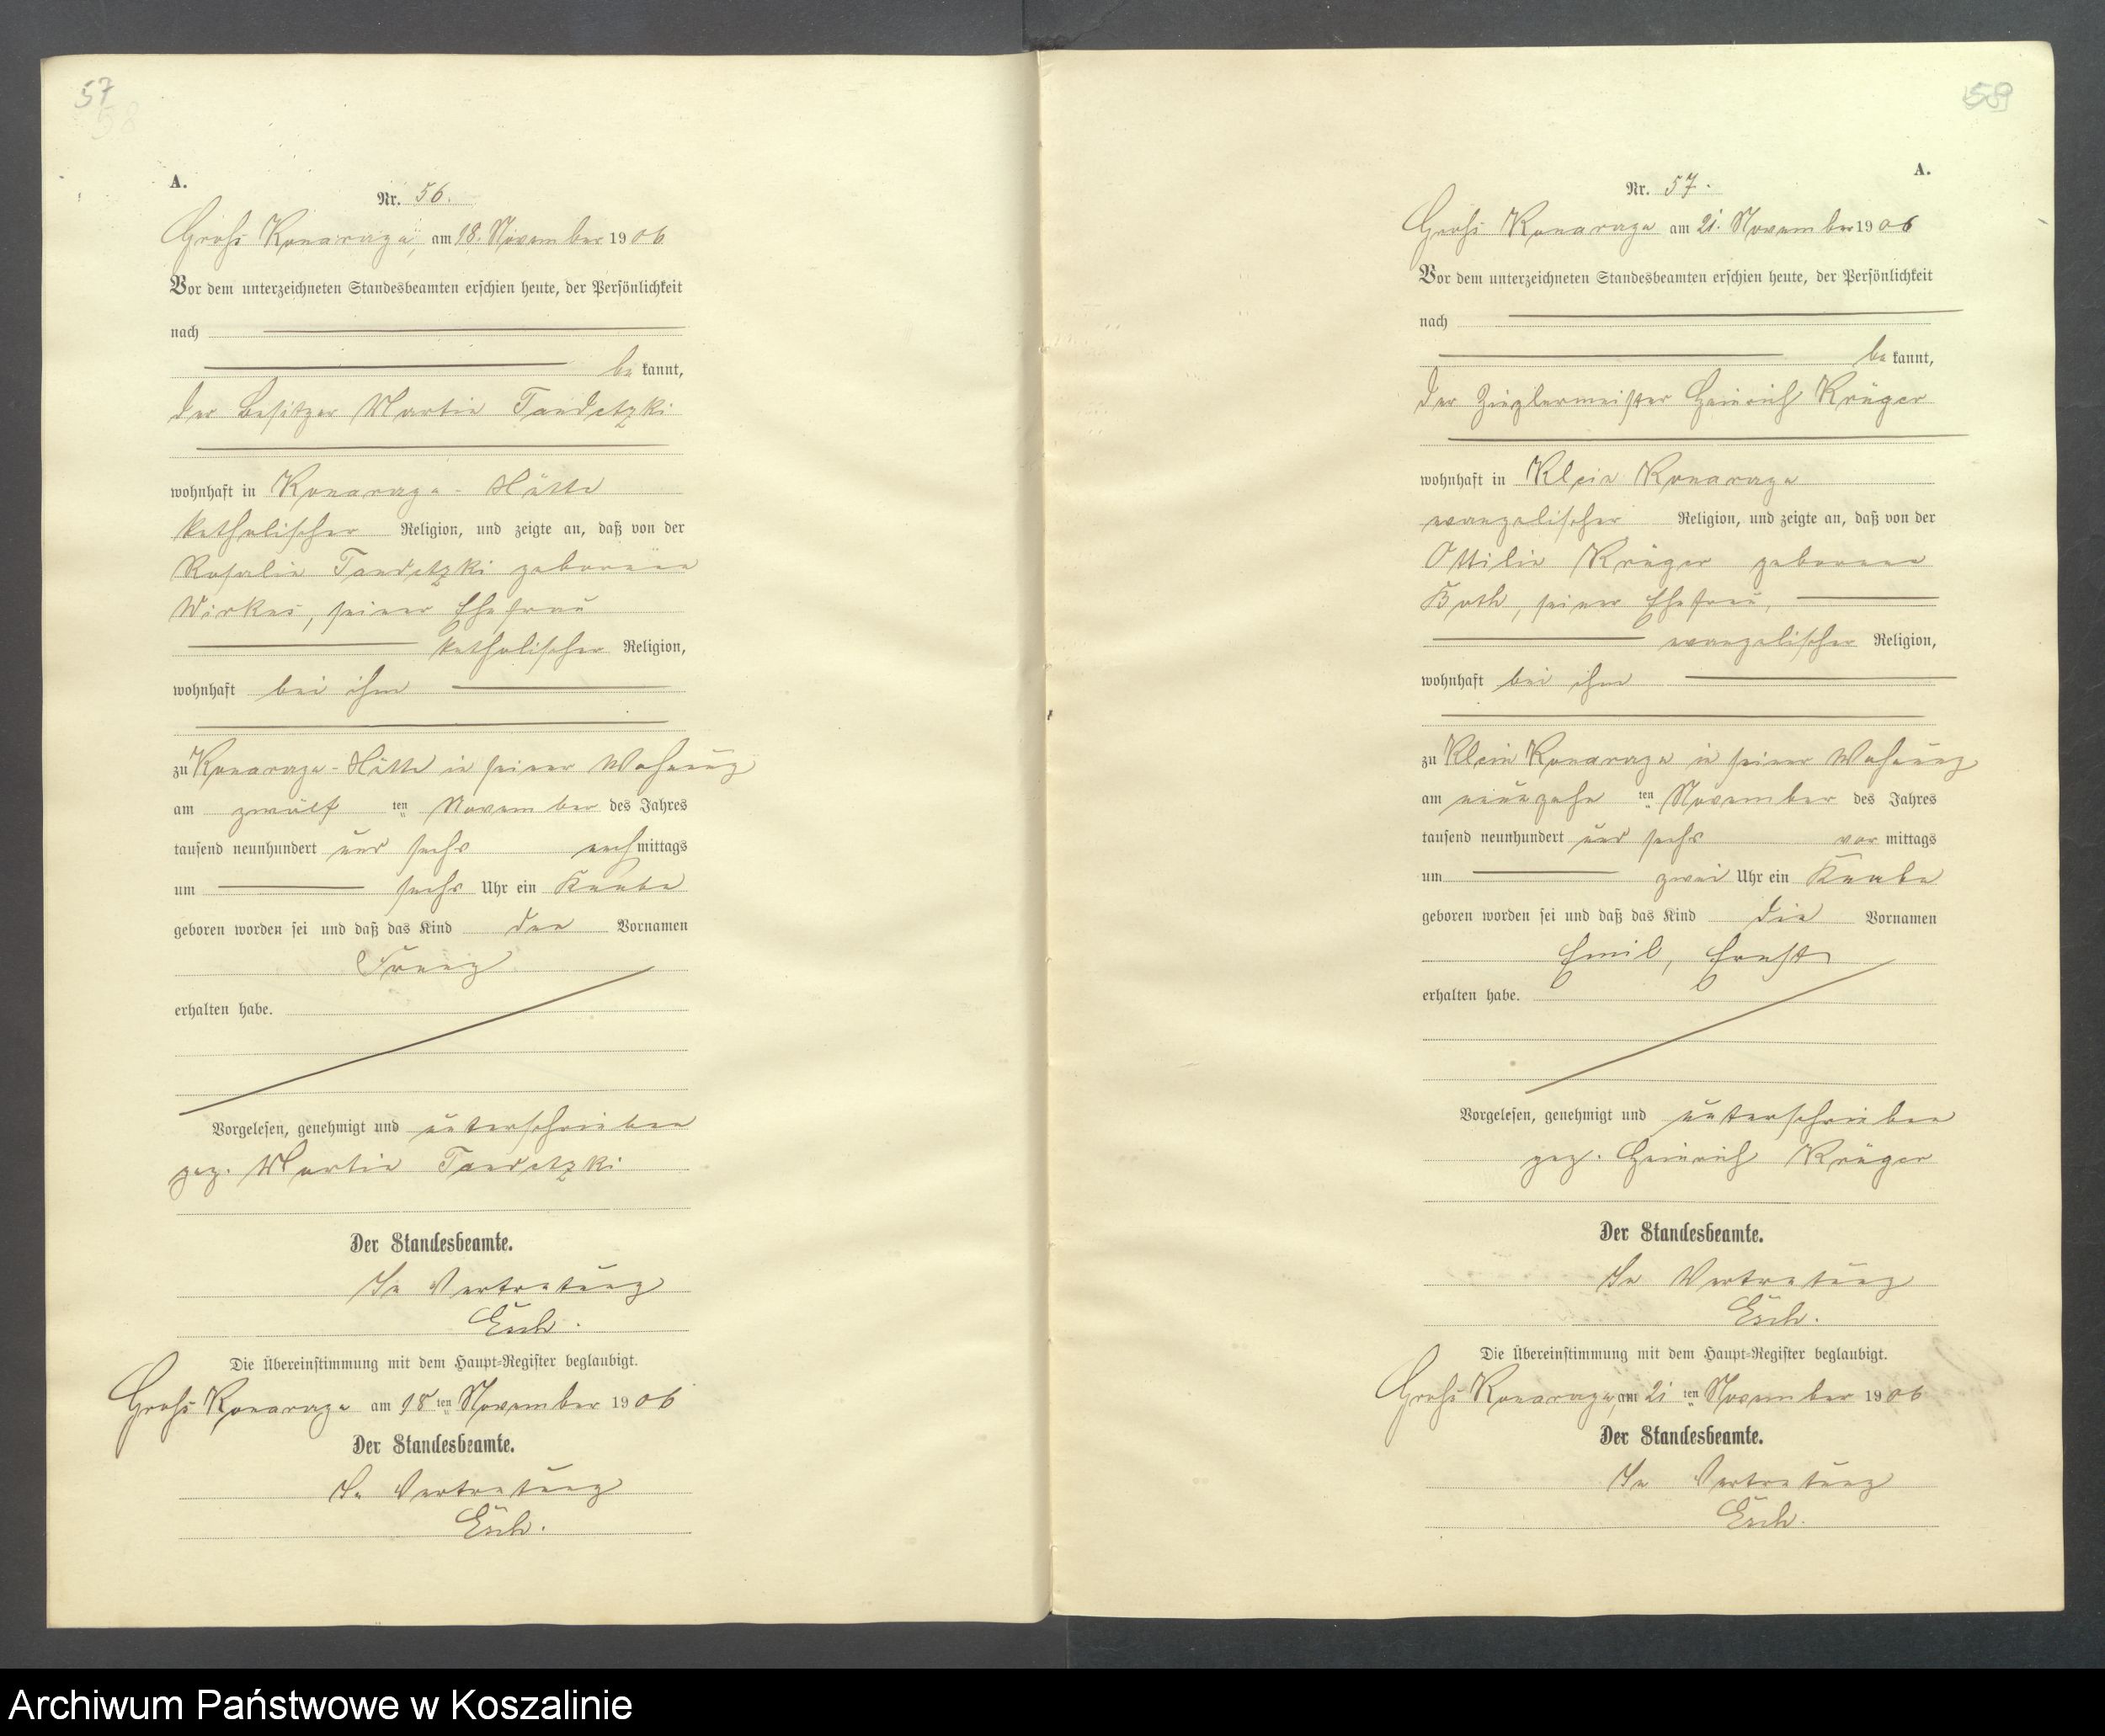 57
58
A.
Nr. 56.
Groß Konarzyn, am 18. November 1906
Vor dem unterzeichneten Standesbeamten erschien heute, der Persönlichkeit
nach
be kannt,
der Besitzer Martin Tandetzki
wohnhaft in Konarzyn-Hütte
katholischer Religion, und zeigte an, daß von der
Rosalie Tandetzki geborenen
Wirkus, seiner Ehefrau
katholischer Religion,
wohnhaft bei ihm
zu Konarzyn-Hütte in seiner Wohnung
am zwölf ten November des Jahres
tausend neunhundert und sechs nachmittags
um sechs Uhr ein Knabe
geboren worden sei und daß das Kind den Vornamen
Franz
erhalten habe.
Vorgelesen, genehmigt und unterschrieben
gez. Martin Tandetzki
Der Standesbeamte.
In Vertretung
Esch.
Die Übereinstimmung mit dem Haupt-Register beglaubigt.
Groß Konarzyn am 18 ten November 1906
Der Standesbeamte.
In Vertretung
Esch.
A.
Nr. 57.
Groß Konarzyn am 21. November 1906
Vor dem unterzeichneten Standesbeamten erschien heute, der Persönlichkeit
nach
be kannt,
der Zieglermeister Heinrich Krüger
wohnhaft in Klein Konarzyn
evangelischer Religion, und zeigte an, daß von der
Ottilie Krüger geborenen
Both, seiner Ehefrau,
evangelischer Religion,
wohnhaft bei ihm
zu Klein Konarzyn in seiner Wohnung
am neunzehn ten November des Jahres
tausend neunhundert und sechs vor mittags
um zwei Uhr ein Knabe
geboren worden sei und daß das Kind die Vornamen
Emil, Ernst
erhalten habe.
Vorgelesen, genehmigt und unterschrieben
gez. Heinrich Krüger
Der Standesbeamte.
In Vertretung
Esch.
Die Übereinstimmung mit dem Haupt-Register beglaubigt.
Groß Konarzyn, am 21 ten November 1906
Der Standesbeamte.
In Vertretung
Esch.
Archiwum Państwowe w Koszalinie